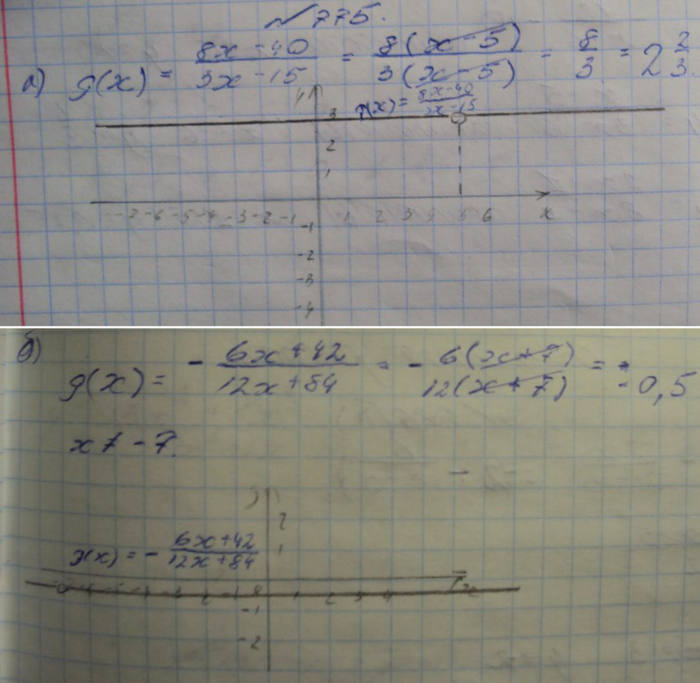 №775.
а) g(x) = 8x-40/3x-15 = 8(x-5)/3(x-5) = 8/3 = 2 2/3.
g(x) = 8x-40/3x-15
3
2
1
-7 -6 -5 -4 -3 -2 -1 1 2 3 4 5 6 x
-1
-2
-3
-4
б) g(x) = - 6x+42/12x+84 = - 6(x+7)/12(x+7) = -0,5
x ≠ -7.
2
g(x) = - 6x+42/12x+84
1
-1
-2